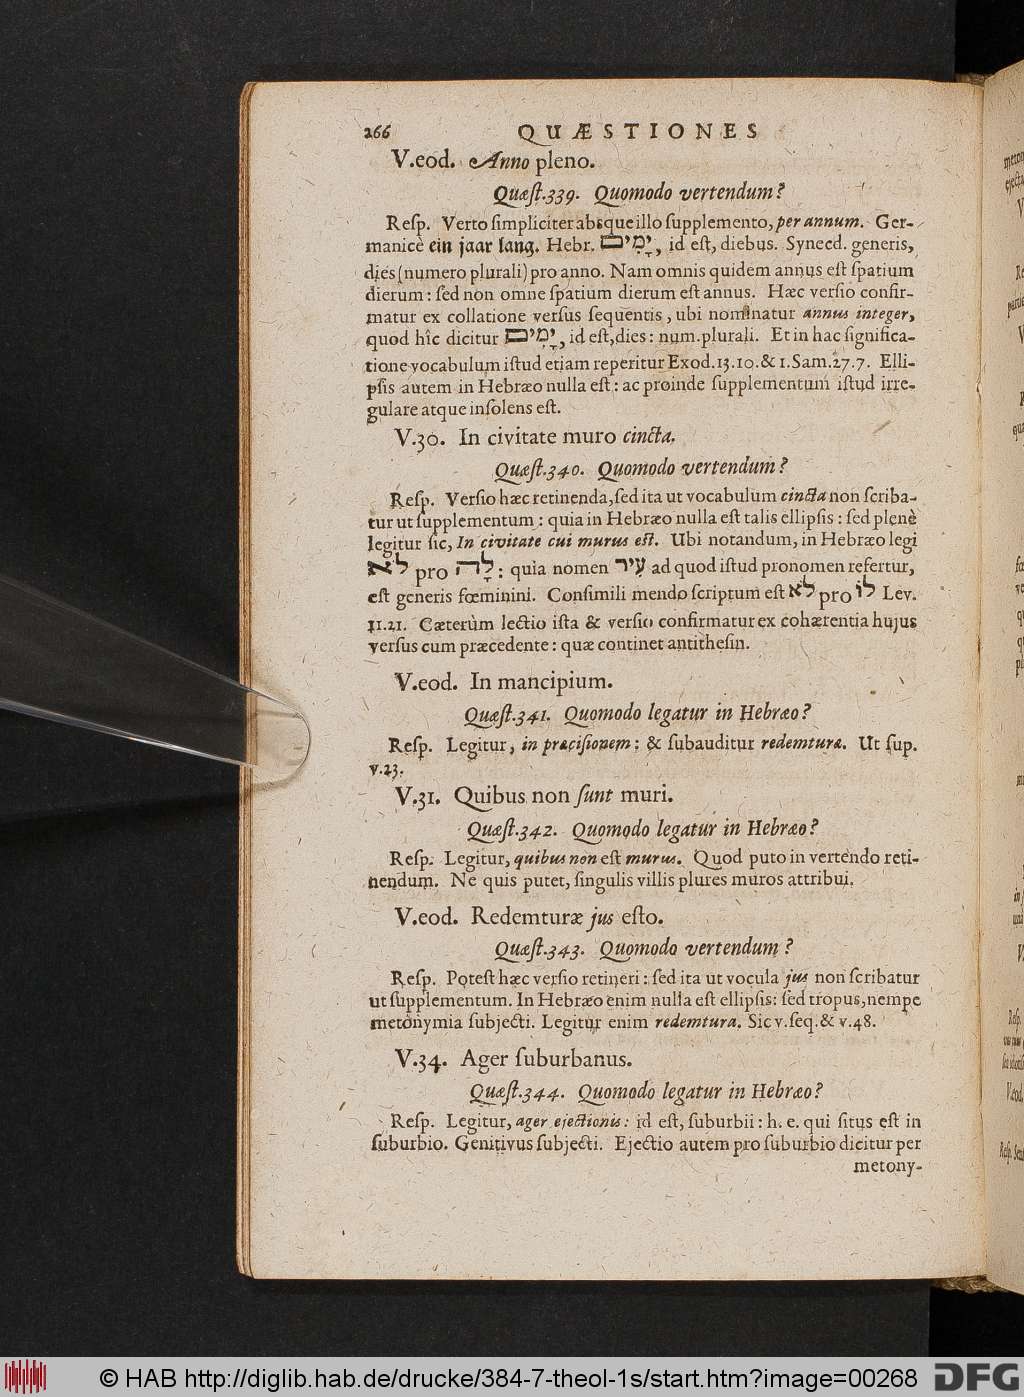 266 QUÆSTIONES
V.eod. Anno pleno.
Quæſt.339. Quomodo vertendum?
Reſp. Verto ſimpliciter absque illo ſupplemento, per annum. Ger-
manicè ein jaar lang. Hebr. יָמִים, id eſt, diebus. Synecd. generis,
dies (numero plurali) pro anno. Nam omnis quidem annus eſt ſpatium
dierum: ſed non omne ſpatium dierum eſt annus. Hæc verſio confir-
matur ex collatione verſus ſequentis, ubi nominatur annus integer,
quod hîc dicitur יָמִים, id eſt, dies: num. plurali. Et in hac ſignifica-
tione vocabulum iſtud etiam reperitur Exod.13.10.& 1.Sam.27.7. Elli-
pſis autem in Hebræo nulla eſt: ac proinde ſupplementum iſtud irre-
gulare atque inſolens eſt.
V.30. In civitate muro cincta.
Quæſt.340. Quomodo vertendum?
Reſp. Verſio hæc retinenda, ſed ita ut vocabulum cincta non ſcriba-
tur ut ſupplementum: quia in Hebræo nulla eſt talis ellipſis: ſed plenè
legitur ſic, In civitate cui murus eſt. Ubi notandum, in Hebræo legi
לא pro לָהּ: quia nomen עִיר ad quod iſtud pronomen refertur,
eſt generis fœminini. Conſimili mendo ſcriptum eſt לֹא pro לוֹ Lev.
11.21. Cæterùm lectio iſta & verſio confirmatur ex cohærentia hujus
verſus cum præcedente: quæ continet antitheſin.
V.eod. In mancipium.
Quæſt.341. Quomodo legatur in Hebræo?
Reſp. Legitur, in præciſionem: & ſubauditur redemturæ. Ut ſup.
v.23.
V.31. Quibus non ſunt muri.
Quæſt.342. Quomodo legatur in Hebræo?
Reſp. Legitur, quibus non eſt murus. Quod puto in vertendo reti-
nendum. Ne quis putet, ſingulis villis plures muros attribui.
V.eod. Redemturæ jus eſto.
Quæſt.343. Quomodo vertendum?
Reſp. Poteſt hæc verſio retineri: ſed ita ut vocula jus non ſcribatur
ut ſupplementum. In Hebræo enim nulla eſt ellipſis: ſed tropus, nempe
metonymia ſubjecti. Legitur enim redemtura. Sic v.ſeq.& v.48.
V.34. Ager ſuburbanus.
Quæſt.344. Quomodo legatur in Hebræo?
Reſp. Legitur, ager ejectionis: id eſt, ſuburbii: h. e. qui ſitus eſt in
ſuburbio. Genitivus ſubjecti. Ejectio autem pro ſuburbio dicitur per
metony-
© HAB http://diglib.hab.de/drucke/384-7-theol-1s/start.htm?image=00268
DFG